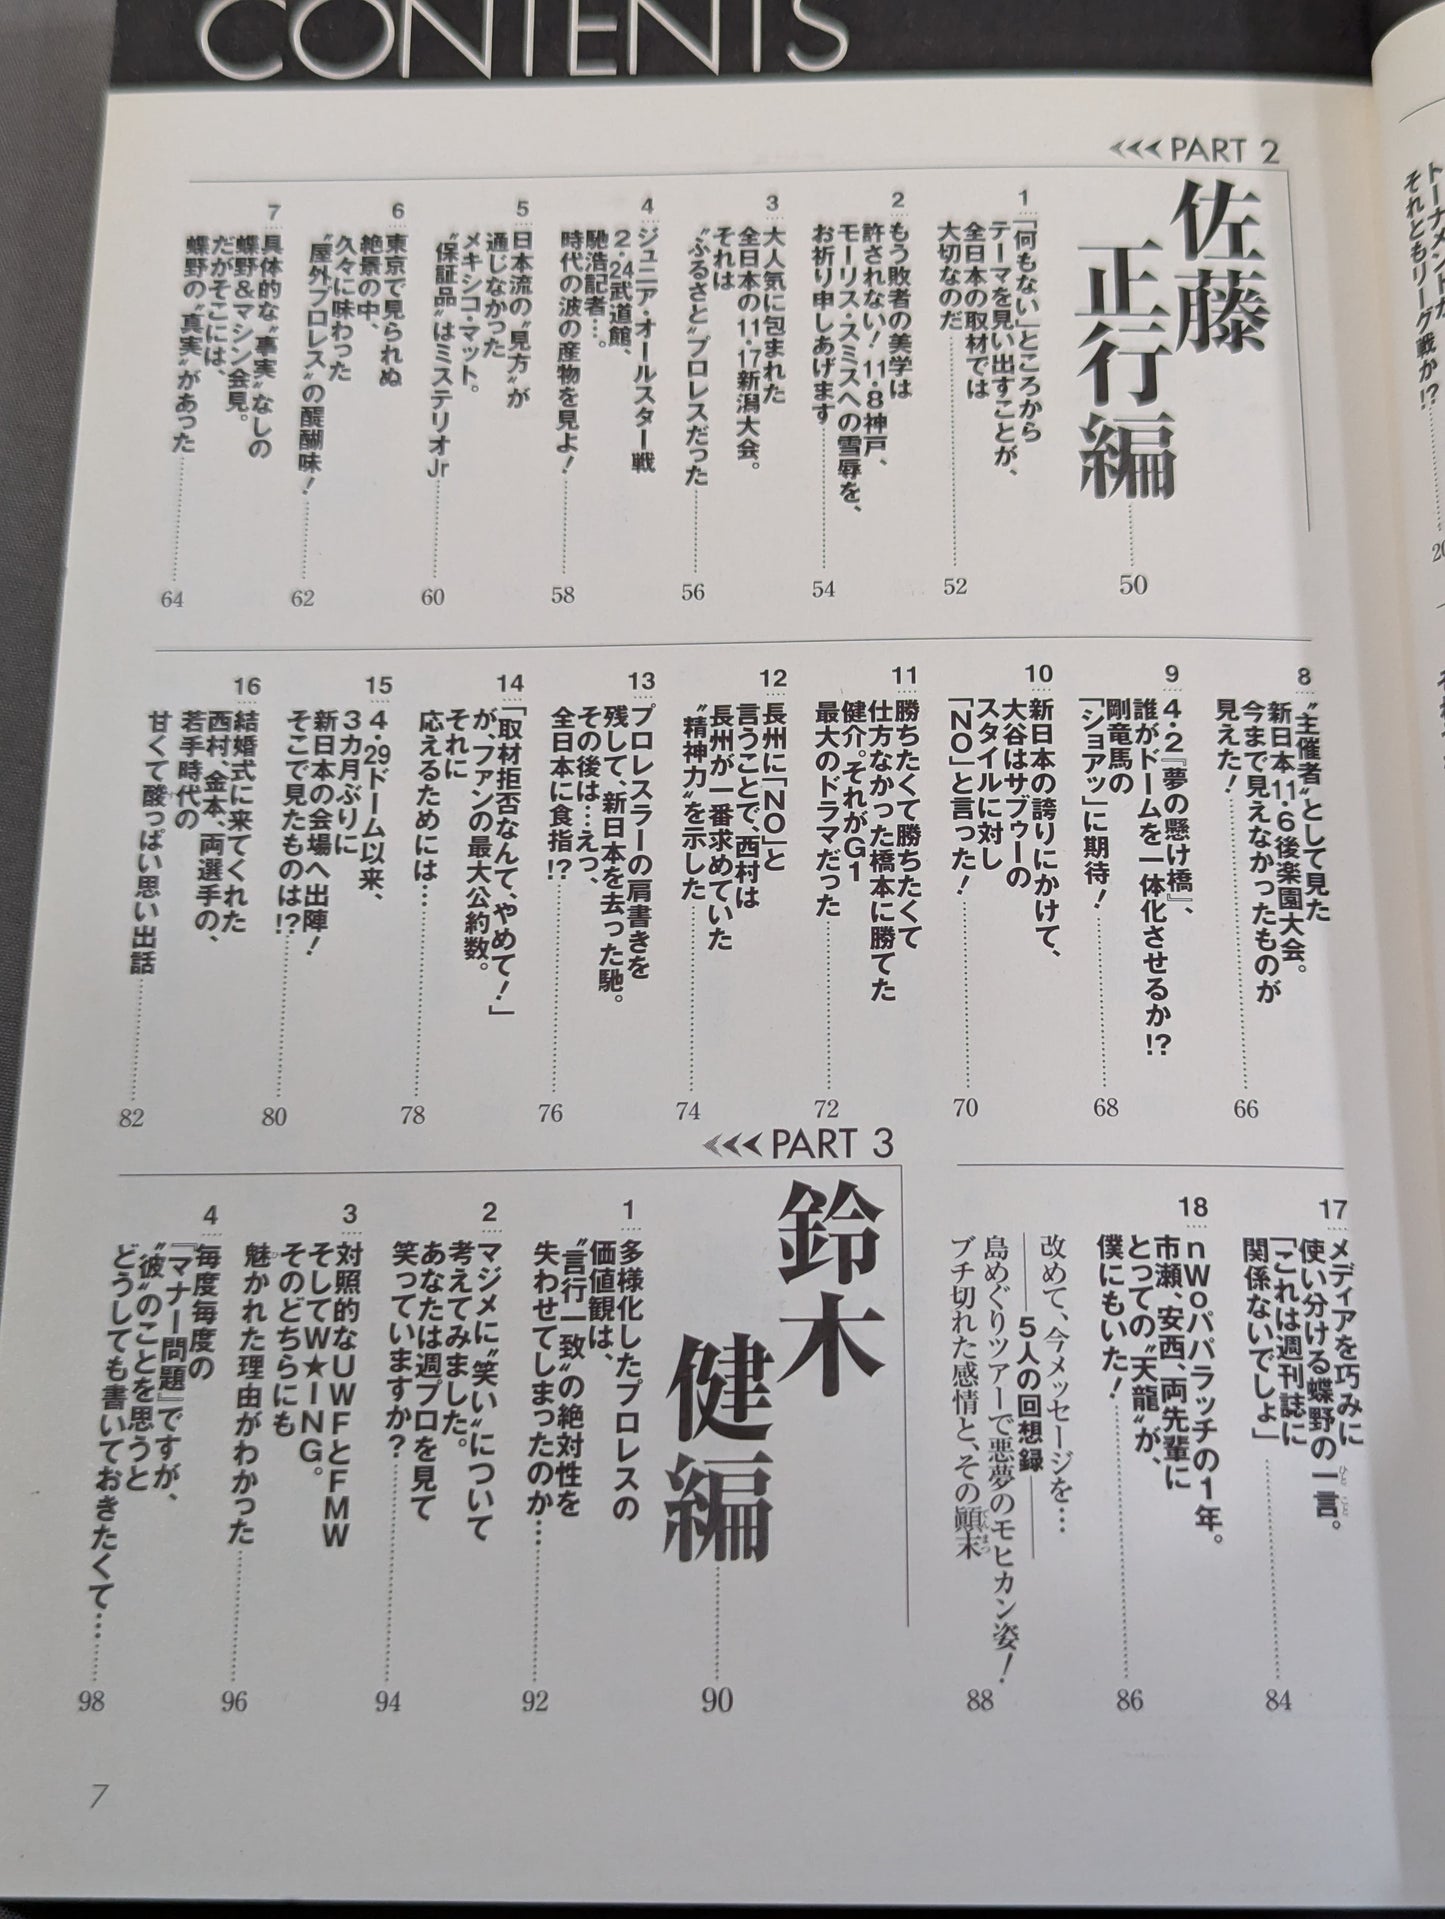 CONTENTS
PART 2
佐藤
正行編
50
1
「何もない」ところから
テーマを見い出すことが、
全日本の取材では
大切なのだ
52
2
もう敗者の美学は
許されない！11・8神戸、
モーリス・スミスへの雪辱を、
お祈り申しあげます
54
3
大人気に包まれた
全日本の11・17新潟大会。
それは
〝ふるさと〟プロレスだった
56
4
ジュニア・オールスター戦
2・24武道館、
馳浩記者…。
時代の波の産物を見よ！
58
5
日本流の〝見方〟が
通じなかった
メキシコ・マット。
〝保証品〟はミステリオJr
60
6
東京で見られぬ
絶景の中、
久々に味わった
〝屋外プロレス〟の醍醐味！
62
7
具体的な〝事実〟なしの
蝶野&マシン会見。
だがそこには、
蝶野の〝真実〟があった
64
8
〝主催者〟として見た
新日本11・6後楽園大会。
今まで見えなかったものが
見えた！
66
9
4・2『夢の懸け橋』、
誰がドームを一体化させるか!?
剛竜馬の
「ショアッ」に期待！
68
10
新日本の誇りにかけて、
大谷はサブゥーの
スタイルに対し
「NO」と言った！
70
11
勝ちたくて勝ちたくて
仕方なかった橋本に勝てた
健介。それがG1
最大のドラマだった
72
12
長州に「NO」と
言うことで、西村は
長州が一番求めていた
〝精神力〟を示した
74
13
プロレスラーの肩書きを
残して、新日本を去った馳。
その後は…えっ、
全日本に食指!?
76
14
「取材拒否なんて、やめて！」
が、ファンの最大公約数。
それに
応えるためには…
78
15
4・29ドーム以来、
3カ月ぶりに
新日本の会場へ出陣！
そこで見たものは!?
80
16
結婚式に来てくれた
西村、金本、両選手の、
若手時代の
甘くて酸っぱい思い出話
82
17
メディアを巧みに
使い分ける蝶野の一言。
ひとこと
「これは週刊誌に
関係ないでしょ」
84
18
nWoパパラッチの1年。
市瀬、安西、両先輩に
とっての〝天龍〟が、
僕にもいた！
86
5人の回想録
改めて、今メッセージを…
島めぐりツアーで悪夢のモヒカン姿！
ブチ切れた感情と、その顛末
てんまつ
88
PART 3
鈴木
健編
90
1
多様化したプロレスの
価値観は、
〝言行一致〟の絶対性を
失わせてしまったのか…
92
2
マジメに〝笑い〟について
考えてみました。
あなたは週プロを見て
笑っていますか？
94
3
対照的なUWFとFMW
そしてW★ING。
そのどちらにも
魅かれた理由がわかった
ひ
96
4
毎度毎度の
『マナー問題』ですが、
〝彼〟のことを思うと
どうしても書いておきたくて…
98
7
トーナメントか
それともリーグ戦か!?